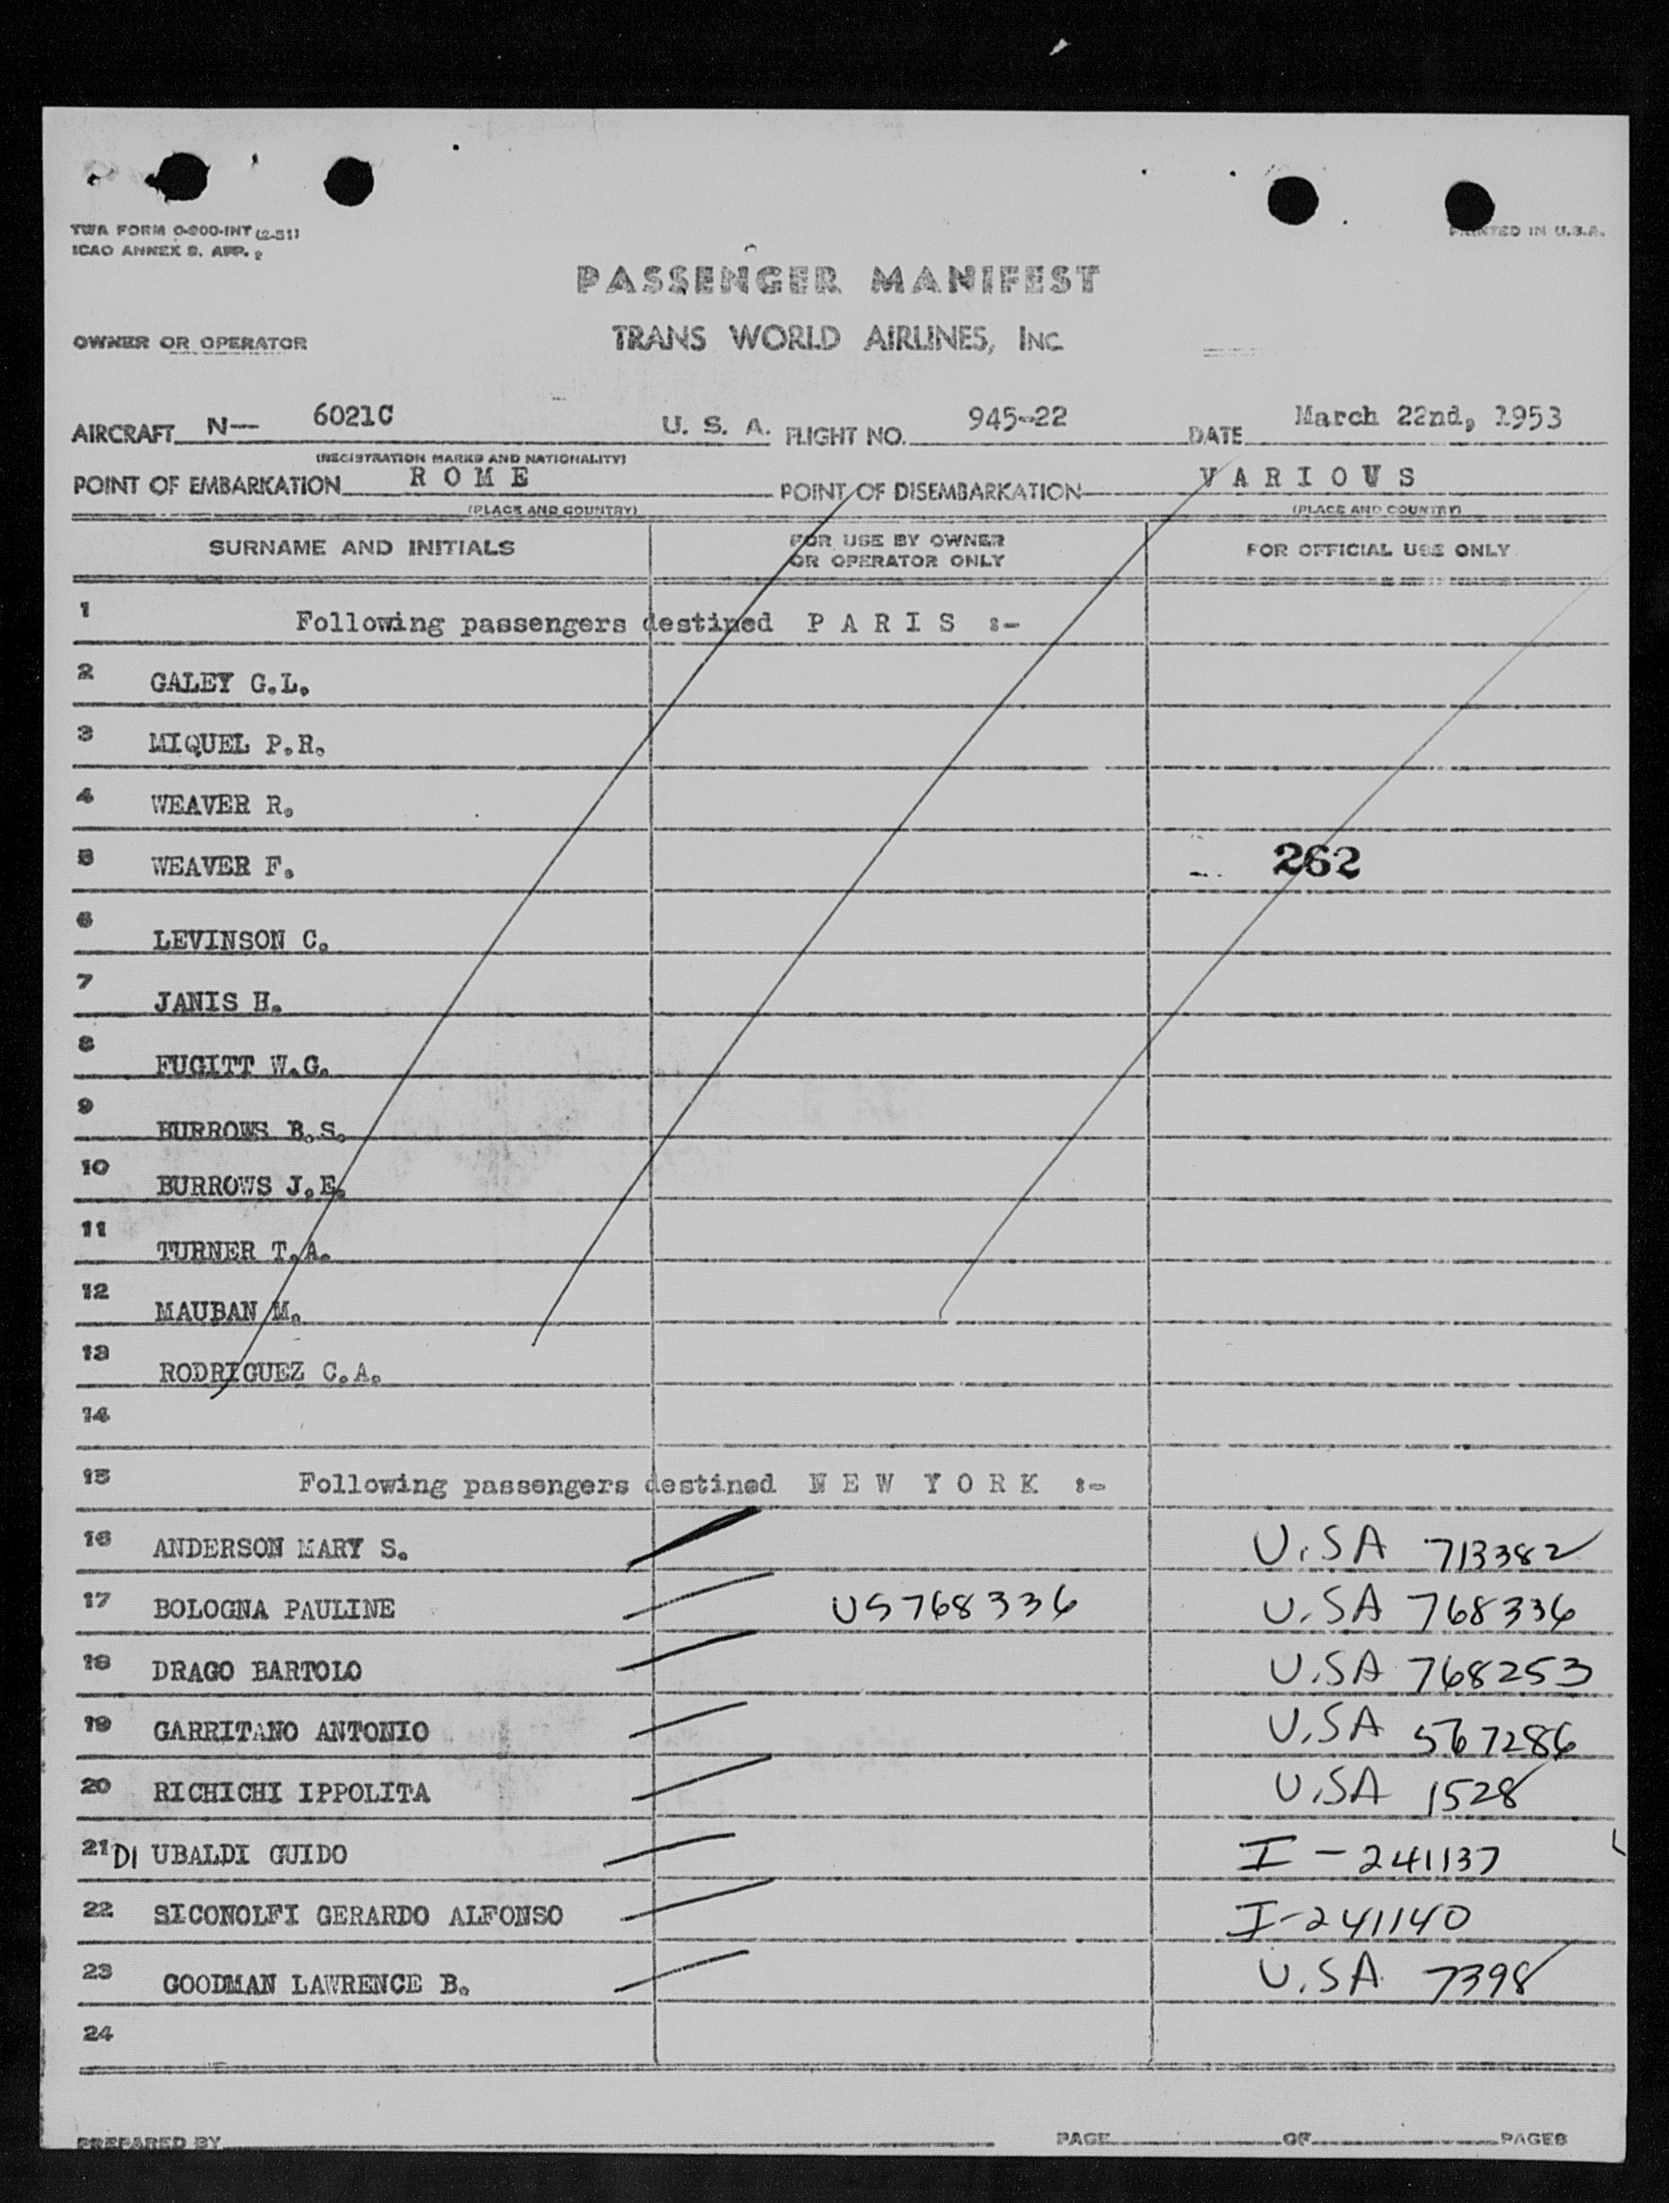 TWA FORM 0-800-INT (2-51)
ICAO ANNEX 9. APP. 2
PRINTED IN U.S.A.
PASSENGER MANIFEST
OWNER OR OPERATOR TRANS WORLD AIRLINES, INC
AIRCRAFT N— 6021C U. S. A. FLIGHT NO. 945-22 DATE March 22nd, 1953
(REGISTRATION MARKS AND NATIONALITY)
POINT OF EMBARKATION R O M E POINT OF DISEMBARKATION V A R I O U S
(PLACE AND COUNTRY) (PLACE AND COUNTRY)
SURNAME AND INITIALS FOR USE BY OWNER OR OPERATOR ONLY FOR OFFICIAL USE ONLY
1 Following passengers destined P A R I S :-
2 GALEY G.L.
3 MIQUEL P.R.
4 WEAVER R.
5 WEAVER F. 262
6 LEVINSON C.
7 JANIS H.
8 FUGITT W.G.
9 BURROWS B.S.
10 BURROWS J.E.
11 TURNER T.A.
12 MAUBAN M.
13 RODRIGUEZ C.A.
14
15 Following passengers destined N E W Y O R K :-
16 ANDERSON MARY S. U.SA 713382
17 BOLOGNA PAULINE US768336 U.SA 768336
18 DRAGO BARTOLO U.SA 768253
19 GARRITANO ANTONIO U.SA 567286
20 RICHICHI IPPOLITA U.SA 1528
21 DI UBALDI GUIDO I-241137
22 SICONOLFI GERARDO ALFONSO I-241140
23 GOODMAN LAWRENCE B. U.SA 7398
24
PREPARED BY PAGE OF PAGES